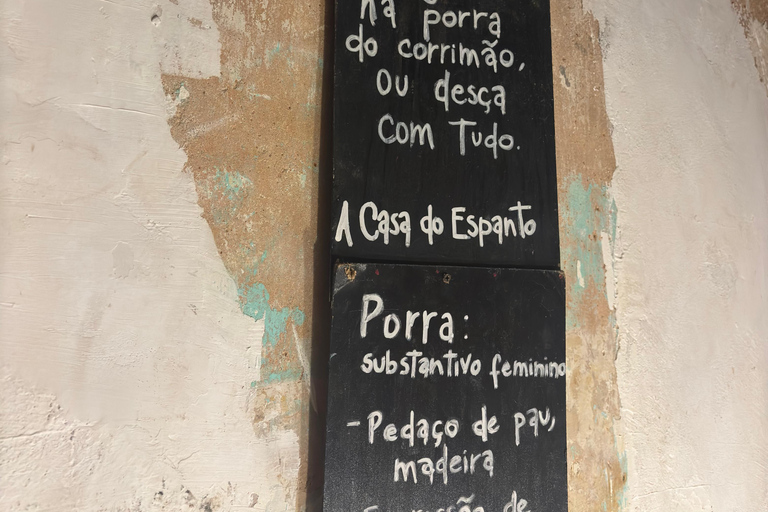 na porra
do corrimão,
ou desça
com Tudo.
A Casa do Espanto
Porra:
substantivo feminino
- Pedaço de pau,
madeira
de